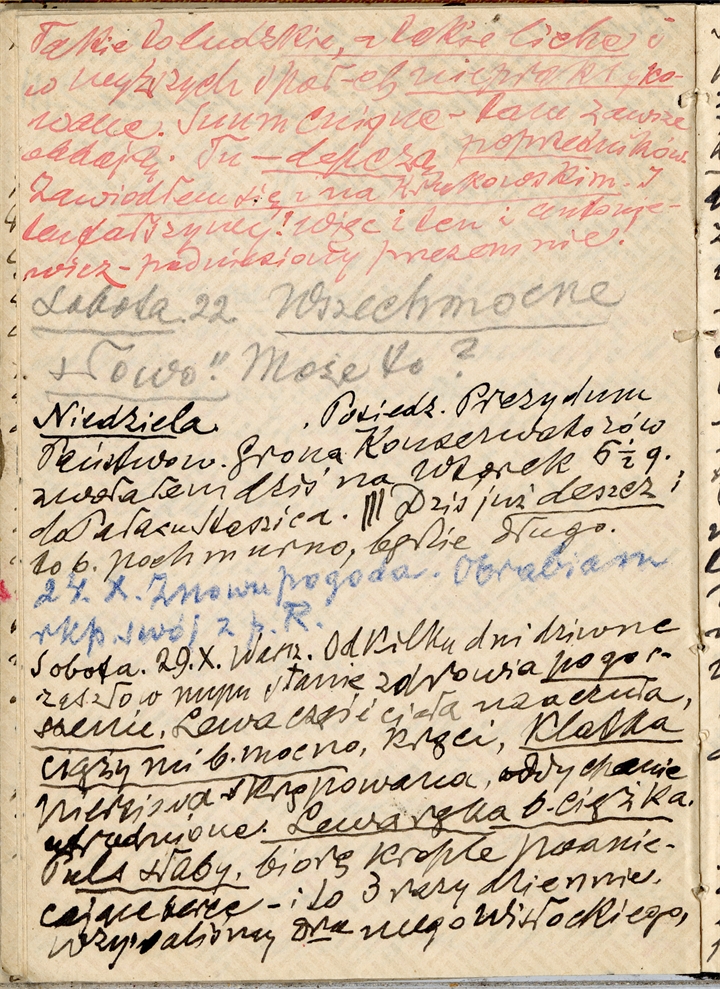 Takie to ludzkie, a takie liche i
w wyższych społ-ch niepraktyko-
wane. Suum cuique - tam zawsze
oddają. Tu - depczą poprzedników.
Zawiodłem się na
i ten i Antonie-
wicz - podniesiony przezemnie!
Sobota. 22 Wszechmocne
słowo". Może to?
Niedziela. Posiedz. Prezydium
Państwow. Grona Konserwatorów
zwołałem dziś na wtorek 6½ g.
do Pałacu Staszica. ||| Dziś już deszcz;
to b. pochmurno, będzie długo.
24. X. Znowu pogoda. Obrabiam
rkp. swój z p. R.
Sobota. 29. X. Warsz. Od kilku dni dziwne
zaszło w mym stanie zdrowia pogor-
szenie. Lewa część ciała nieczuła,
ciąży mi b. mocno, kręci, klatka
piersiowa skrępowana, oddychanie
utrudnione. Lewa ręka b. ciężka.
Puls słaby, biorę krople
serce - i to 3 razy dziennie.
Wezwaliśmy dra Wisłockiego,